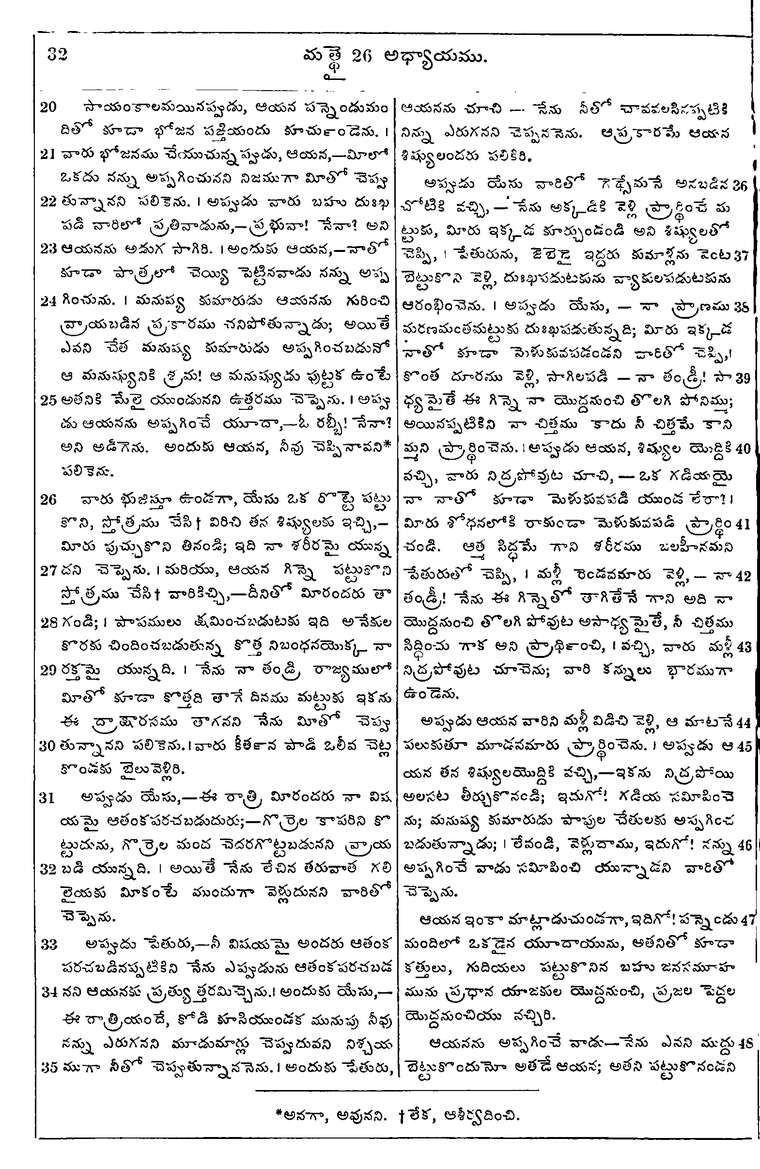 32
మత్థై 26 అధ్యాయము.
20 సాయంకాలమయినప్పుడు, ఆయన పన్నెండుమం
దితో కూడా భోజన పఙ్క్తియందు కూచుర్ండెను. ।
21 వారు భోజనము చేయుచున్నప్పుడు, ఆయన,—మీలో
ఒకడు నన్ను అప్పగించునని నిజముగా మీతో చెప్పు
22 తున్నానని పలికెను. । అప్పుడు వారు బహు దుఃఖ
పడి వారిలో ప్రతివాడును,—ప్రభువా! నేనా? అని
23 ఆయనను అడుగ సాగిరి. । అందుకు ఆయన,—నాతో
కూడా పాత్రలో చెయ్యి పెట్టినవాడు నన్ను అప్ప
24 గించును. । మనుష్య కుమారుడు ఆయనను గురించి
వ్రాయబడిన ప్రకారము చనిపోతున్నాడు; అయితే
ఎవని చేత మనుష్య కుమారుడు అప్పగించబడునో
ఆ మనుష్యునికి శ్రమ! ఆ మనుష్యుడు పుట్టక ఉంటే
25 అతనికి మేలై యుండునని ఉత్తరము చెప్పెను. । అప్పు
డు ఆయనను అప్పగించే యూదా,—ఓ రబ్బీ! నేనా?
అని అడిగెను. అందుకు ఆయన, నీవు చెప్పినావని*
పలికెను.
26 వారు భుజిస్తూ ఉండగా, యేసు ఒక రొట్టె పట్టు
కొని, స్తోత్రము చేసి† విరిచి తన శిష్యులకు ఇచ్చి,—
మీరు పుచ్చుకొని తినండి; ఇది నా శరీరమై యున్న
27 దని చెప్పెను. । మరియు, ఆయన గిన్నె పట్టుకొని
స్తోత్రము చేసి† వారికిచ్చి,—దీనితో మీరందరు తా
28 గండి; । పాపములు క్షమించబడుటకు ఇది అనేకుల
కొరకు చిందించబడుతున్న కొత్త నిబంధనయొక్క నా
29 రక్తమై యున్నది. । నేను నా తండ్రి రాజ్యములో
మీతో కూడా కొత్తది తాగే దినము మట్టుకు ఇకను
ఈ ద్రాక్షారసము తాగనని నేను మీతో చెప్పు
30 తున్నానని పలికెను. । వారు కీతర్న పాడి ఒలీవ చెట్ల
కొండకు బైలువెళ్లిరి.
31 అప్పుడు యేసు,—ఈ రాత్రి మీరందరు నా విష
యమై ఆతంకపరచబడుదురు;—గొర్రెల కాపరిని కొ
ట్టుదును, గొర్రెల మంద చెదరగొట్టబడునని వ్రాయ
32 బడి యున్నది. । అయితే నేను లేచిన తరువాత గలి
లైయకు మీకంటే ముందుగా వెళ్లుదునని వారితో
చెప్పెను.
33 అప్పుడు పేతురు,—నీ విషయమై అందరు ఆతంక
పరచబడినప్పటికిని నేను ఎప్పుడును ఆతంకపరచబడ
34 నని ఆయనకు ప్రత్యుత్తరమిచ్చెను. । అందుకు యేసు,—
ఈ రాత్రియందే, కోడి కూసియుండక మునుపు నీవు
నన్ను ఎరుగనని మూడుమార్లు చెప్పుదువని నిశ్చయ
35 ముగా నీతో చెప్పుతున్నాననెను. । అందుకు పేతురు,
ఆయనను చూచి — నేను నీతో చావవలసినప్పటికి
నిన్ను ఎరుగనని చెప్పననెను. ఆప్రకారమే ఆయన
శిష్యులందరు పలికిరి.
అప్పుడు యేసు వారితో గెథ్సేమనే అనబడిన 36
చోటికి వచ్చి,—నేను అక్కడికి వెళ్లి ప్రార్థించే మ
ట్టుకు, మీరు ఇక్కడ కూర్చుండండి అని శిష్యులతో
చెప్పి, । పేతురును, జెబెదై ఇద్దరు కుమాళ్లను వెంట 37
బెట్టుకొని వెళ్లి, దుఃఖపడుటకును వ్యాకులపడుటకును
ఆరంభించెను. । అప్పుడు యేసు, — నా ప్రాణము 38
మరణమంతమట్టుకు దుఃఖపడుతున్నది; మీరు ఇక్కడ
నాతో కూడా మెళుకువపడండని వారితో చెప్పి,।
కొంత దూరము వెళ్లి, సాగిలపడి — నా తండ్రీ! సా 39
ధ్యమైతే ఈ గిన్నె నా యొద్దనుంచి తొలగి పోనిమ్ము;
అయినప్పటికిని నా చిత్తము కాదు నీ చిత్తమే కాని
మ్మని ప్రార్థించెను. । అప్పుడు ఆయన, శిష్యుల యొద్దికి 40
వచ్చి, వారు నిద్రపోవుట చూచి, — ఒక గడియయై
నా నాతో కూడా మెళుకువపడి యుండ లేరా?।
మీరు శోధనలోకి రాకుండా మెళుకువపడి ప్రార్థిం 41
చండి. ఆత్మ సిద్ధమే గాని శరీరము బలహీనమని
పేతురుతో చెప్పి, । మళ్లీ రెండవమారు వెళ్లి, — నా 42
తండ్రీ! నేను ఈ గిన్నెతో తాగితేనే గాని అది నా
యొద్దనుంచి తొలగి పోవుట అసాధ్యమైతే, నీ చిత్తము
సిద్ధించు గాక అని ప్రార్థించి, । వచ్చి, వారు మళ్లీ 43
నిద్రపోవుట చూచెను; వారి కన్నులు భారముగా
ఉండెను.
అప్పుడు ఆయన వారిని మళ్లీ విడిచి వెళ్లి, ఆ మాటనే 44
పలుకుతూ మూడవమారు ప్రార్థించెను. । అప్పుడు ఆ 45
యన తన శిష్యులయొద్దికి వచ్చి,—ఇకను నిద్రపోయి
అలసట తీర్చుకొనండి; ఇదుగో! గడియ సమీపించె
ను; మనుష్య కుమారుడు పాపుల చేతులకు అప్పగించ
బడుతున్నాడు; । లేవండి, వెళ్లుదాము, ఇదుగో! నన్ను 46
అప్పగించే వాడు సమీపించి యున్నాడని వారితో
చెప్పెను.
ఆయన ఇంకా మాట్లాడుచుండగా, ఇదిగో! పన్నెండు 47
మందిలో ఒకడైన యూదాయును, అతనితో కూడా
కత్తులు, గుదియలు పట్టుకొనిన బహు జనసమూహ
మును ప్రధాన యాజకుల యొద్దనుంచి, ప్రజల పెద్దల
యొద్దనుంచియు నచ్చిరి.
ఆయనను అప్పగించే వాడు—నేను ఎనని ముద్దు 48
బెట్టుకొందునో అతడే ఆయన; అతని పట్టుకొనండని
*అనగా, అవునని. †లేక, ఆశీర్వదించి.